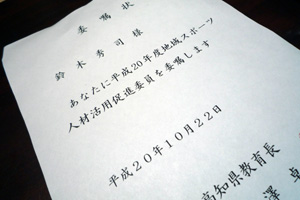 委嘱状
鈴木秀司様
あなたに平成20年度地域スポーツ
人材活用促進委員を委嘱します
平成20年10月22日
高知県教育長
澤 卓